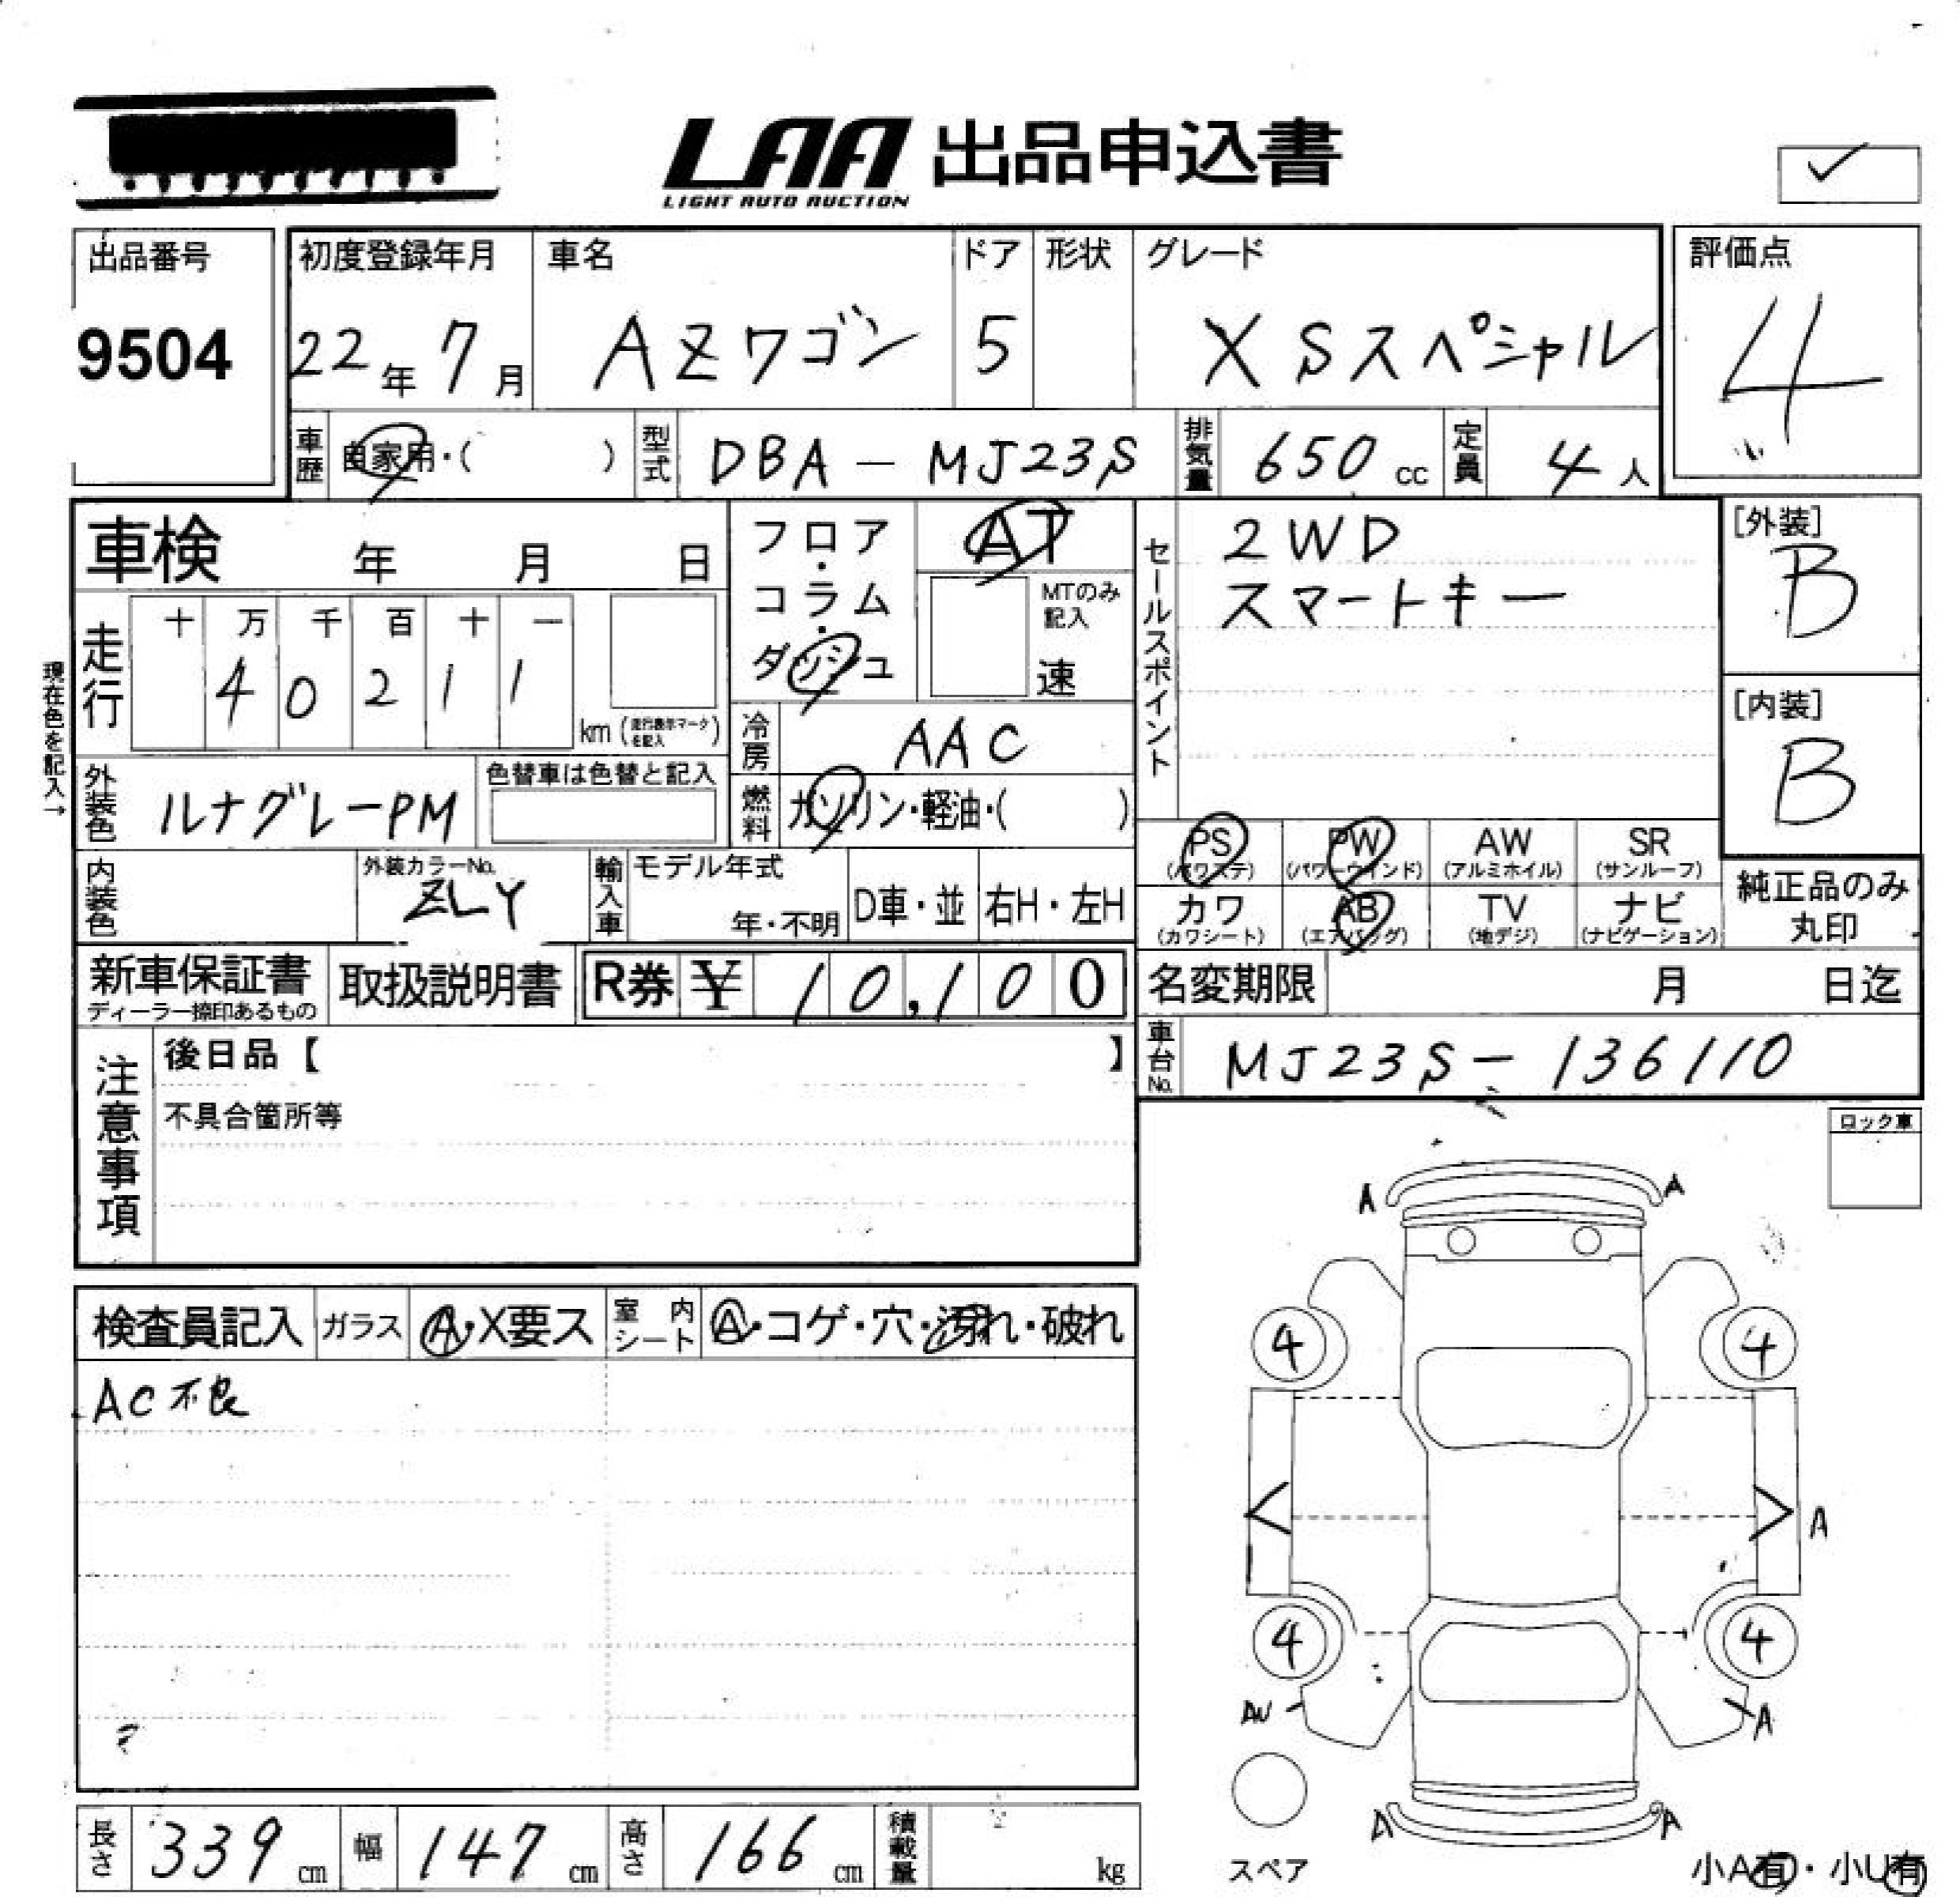 LAA 出品申込書
LIGHT AUTO AUCTION
出品番号 初度登録年月 車名 ドア 形状 グレード 評価点
9504 22年 7月 AZワゴン 5 XSスペシャル 4
車歴 自家用・( ) 型式 DBA-MJ23S 排気量 650 cc 定員 4人
車検 年 月 日
フロア・コラム・ダッシュ AT
MTのみ記入 速
セールスポイント
2WD
スマートキー
[外装]
B
[内装]
B
現在色を記入→
走行 十 万 千 百 十 一
4 0 2 1 1 km (走行表示マークを記入)
冷房 AAC
外装色 ルナグレーPM 色替車は色替と記入
燃料 ガソリン・軽油・( )
PS (パワステ) PW (パワーウインド) AW (アルミホイル) SR (サンルーフ)
カワ (カワシート) AB (エアバッグ) TV (地デジ) ナビ (ナビゲーション)
純正品のみ
丸印
内装色 外装カラーNo. ZLY 輸入車 モデル年式 年・不明 D車・並 右H・左H
新車保証書 取扱説明書 R券 ¥ 10,100
ディーラー捺印あるもの
名変期限 月 日迄
車台No. MJ23S-136110
注意事項
後日品【 】
不具合箇所等
ロック車
検査員記入 ガラス A・X要ス 室内シート A・コゲ・穴・汚れ・破れ
AC不良
A A
4 4
A
4 4
AU A
A A
スペア
小A有・小U有
長さ 339 cm 幅 147 cm 高さ 166 cm 積載量 kg